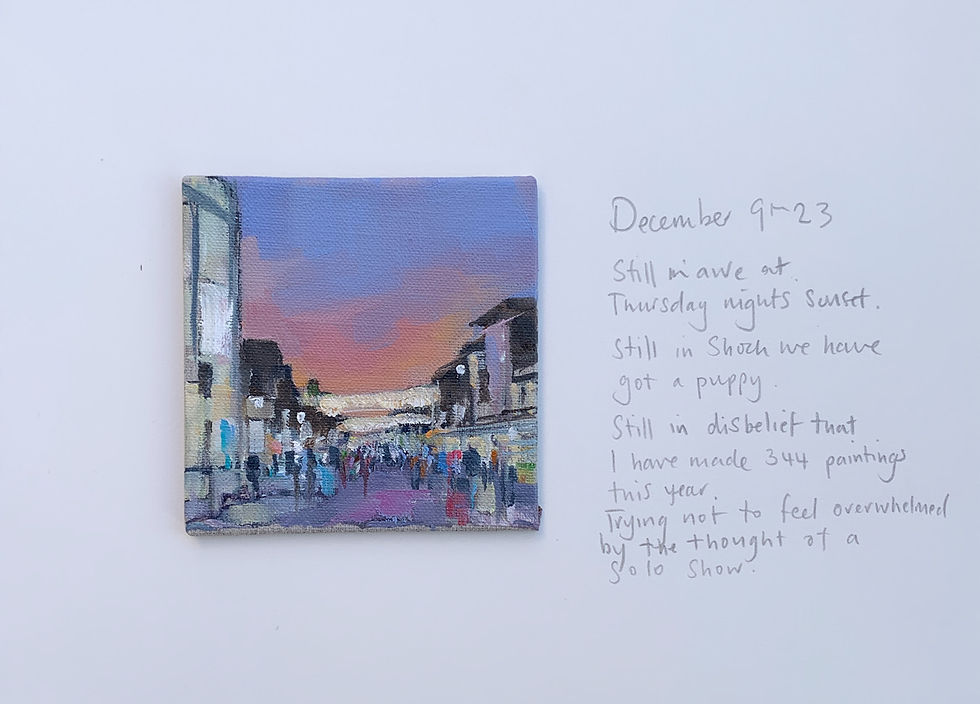 December 9~23
Still in awe at
Thursday nights Sunset.
Still in Shock we have
got a puppy.
Still in disbelief that
I have made 344 paintings
this year.
Trying not to feel overwhelmed
by the thought of a
Solo Show.